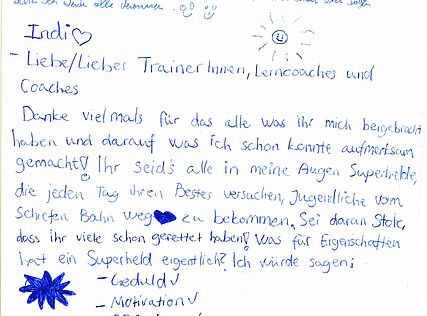 alle
Indi♡
- Liebe/Lieber TrainerInnen, Lerncoaches und
Coaches
Danke vielmals für das alle was ihr mich beigebracht
haben und darauf was ich schon konnte aufmerksam
gemacht! Ihr Seid's alle in meine Augen Superhelde,
die jeden Tag ihren Bestes versuchen, Jugendliche vom
Schiefen Bahn weg♥ zu bekommen. Sei daran Stolz,
dass ihr viele schon gerettet haben! Was für Eigenschaften
hat ein Superheld eigentlich? Ich würde sagen:
- Geduld ✓
- Motivation ✓